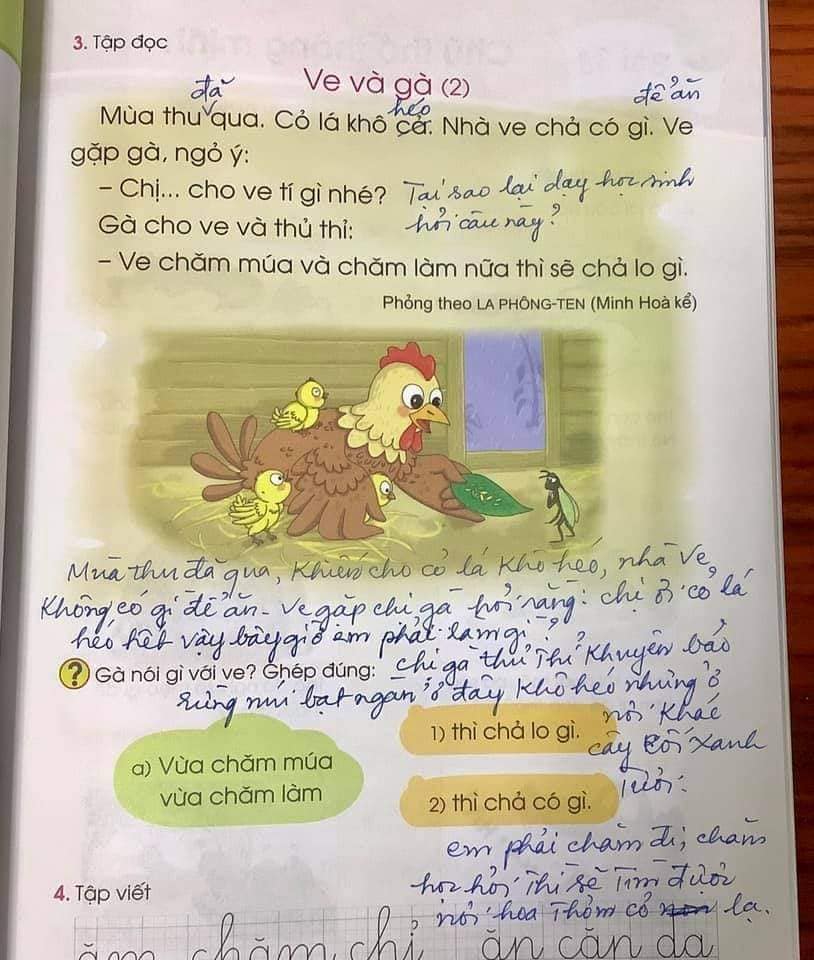 3. Tập đọc
Ve và gà (2)
đã
héo
để ăn
Mùa thu qua. Cỏ lá khô cả. Nhà ve chả có gì. Ve
gặp gà, ngỏ ý:
– Chị... cho ve tí gì nhé? Tại sao lại dạy học sinh
Gà cho ve và thủ thỉ: hỏi câu này?
– Ve chăm múa và chăm làm nữa thì sẽ chả lo gì.
Phỏng theo LA PHÔNG-TEN (Minh Hoà kể)
Mùa thu đã qua, khiến cho cỏ lá khô héo, nhà ve
không có gì để ăn - ve gặp chị gà hỏi rằng: chị ơi cỏ lá
héo hết vậy bây giờ em phải làm gì?
Gà nói gì với ve? Ghép đúng: chị gà thủ thỉ khuyên bảo
rừng núi bạt ngàn ở đây khô héo nhưng ở
nơi khác
1) thì chả lo gì.
cây cối xanh
a) Vừa chăm múa
vừa chăm làm
2) thì chả có gì.
tươi.
em phải chăm đi, chăm
học hỏi thì sẽ tìm được
4. Tập viết
nơi hoa thơm cỏ lạ.
ăm chăm chỉ ăn căn da